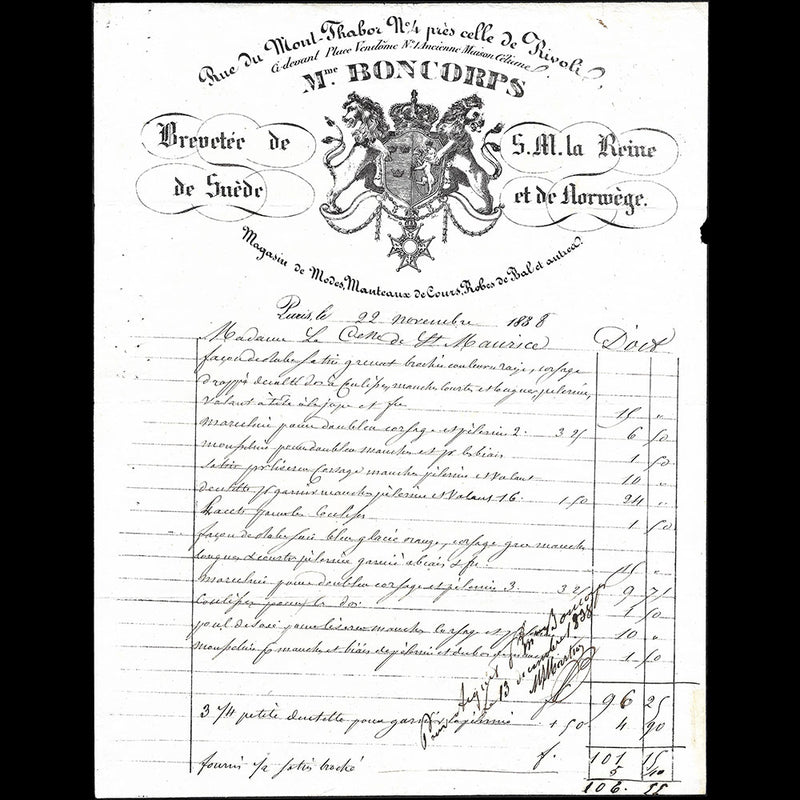 Rue du Mont-Thabor No. 4 près celle de Rivoli
Ci-devant Place Vendôme No. 1, Ancienne Maison Céliane
Mme. BONCORPS
Brevetée de S.M. la Reine
de Suède et de Norwège.
Magasin de Modes, Manteaux de Cours, Robes de Bal et autres.
Paris, le 22 novembre 1838
Madame La Ctesse de St Maurice Doit
façon de robe satin grenat broché couleur raye, corsage
drappé manches courtes et longues, pelerine,
volant à tête à la jupe et fre 15 "
marceline pour doubleu corsage et pelerine 2. 3 25 6 50
mousseline pour doubleu manches et pr les biais 1 50
satin pr liserer corsage manches pelerine et volant 10 "
dentelle pr garnir manches pelerine et volant 16. 1 50 24 "
Lacets pour les coulisses 1 50
façon de robe soie bleu glacée orange, corsage manches
longues & courtes pelerine garnie à biais & fre 15 "
marceline pour doubleu corsage et pelerine 3. 3 25 9 75
coulisses pour le dos 1 50
poul de soie pour liserer manches corsage et 10 "
mousseline pr manches et biais de pelerine et du bas 1 50
Pour acquit
Le 13 décembre 1838
f. 96 25
3 1/4 petite dentelle pour garnir la pelerine 1 50 4 90
f. 101 15
fourni satin broché 5 40
106. 55